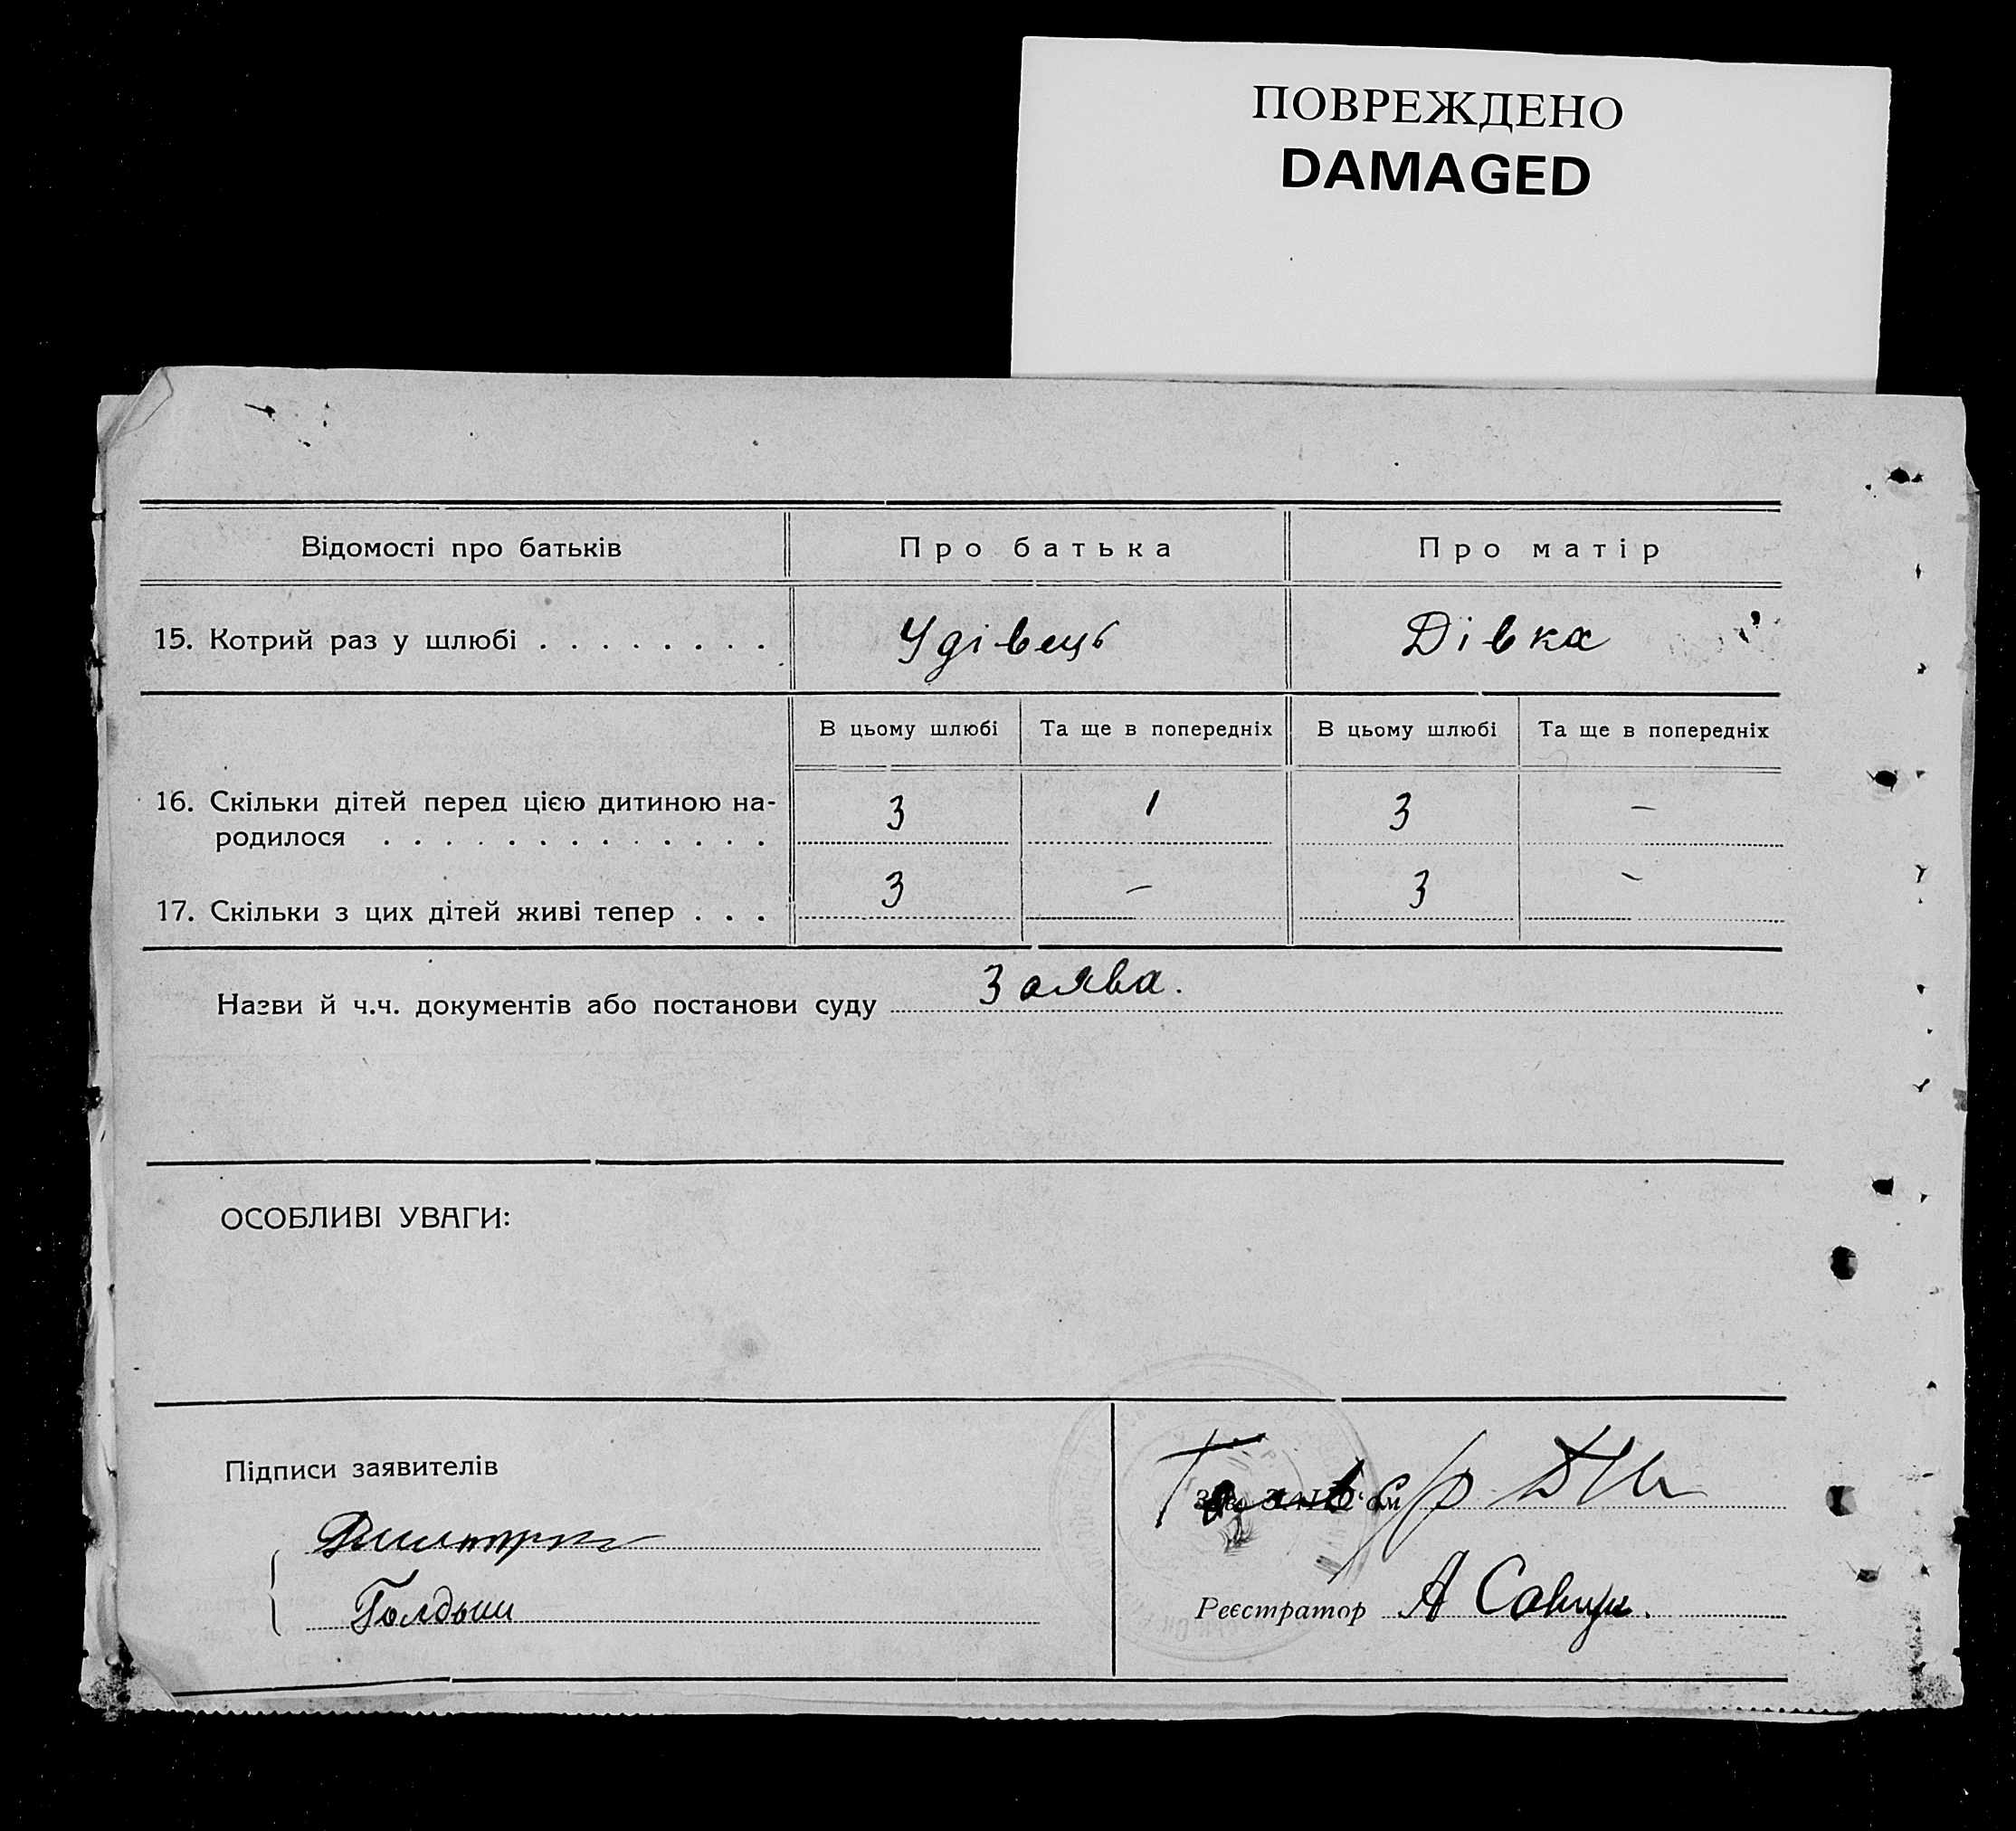 ПОВРЕЖДЕНО
DAMAGED
Відомості про батьків Про батька Про матір
15. Котрий раз у шлюбі . . . . . . . . Удівець Дівка
В цьому шлюбі Та ще в попередніх В цьому шлюбі Та ще в попередніх
16. Скільки дітей перед цією дитиною на-
родилося . . . . . . . . . . . . . 3 1 3 –
17. Скільки з цих дітей живі тепер . . . 3 – 3 –
Назви й ч.ч. документів або постанови суду Заява.
ОСОБЛИВІ УВАГИ:
Підписи заявителів
Реєстратор А